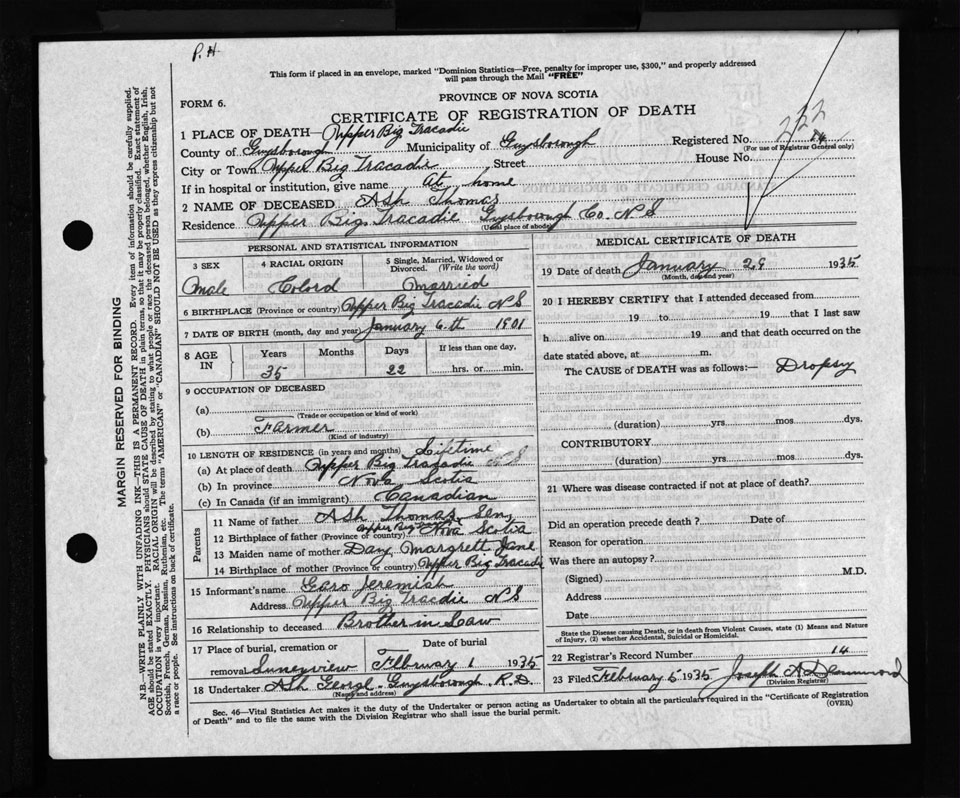 P. H
This form if placed in an envelope, marked "Dominion Statistics—Free, penalty for improper use, $300," and properly addressed
will pass through the Mail "FREE"
MARGIN RESERVED FOR BINDING
N.B.—WRITE PLAINLY WITH UNFADING INK—THIS IS A PERMANENT RECORD. Every item of information should be carefully supplied.
AGE should be stated EXACTLY. PHYSICIANS should STATE CAUSE OF DEATH in plain terms, so that it may be properly classified. Exact statement of
OCCUPATION is very important. RACIAL ORIGIN will be described by stating to what people or race the deceased person belonged, whether English, Irish,
Scottish, French, German, Russian, Ruthenian, etc. The terms "AMERICAN" or "CANADIAN" SHOULD NOT BE USED as they express citizenship but not
a race or people. See instructions on back of certificate.
PROVINCE OF NOVA SCOTIA
FORM 6.
CERTIFICATE OF REGISTRATION OF DEATH
1 PLACE OF DEATH—Upper Big Tracadie
County of Guysborough Municipality of Guysborough Registered No. 222
14
(For use of Registrar General only)
City or Town Upper Big Tracadie Street House No.
If in hospital or institution, give name At home
2 NAME OF DECEASED Ash Thomas
Residence Upper Big Tracadie Guysborough Co. N S
(Usual place of abode)
PERSONAL AND STATISTICAL INFORMATION
3 SEX 4 RACIAL ORIGIN 5 Single, Married, Widowed or
Divorced. (Write the word)
Male Colord Married
6 BIRTHPLACE (Province or country) Upper Big Tracadie N S
7 DATE OF BIRTH (month, day and year) January 6th 1901
8 AGE IN Years Months Days If less than one day,
35 22 hrs. or min.
9 OCCUPATION OF DECEASED
(a)
(Trade or occupation or kind of work)
(b) Farmer
(Kind of industry)
10 LENGTH OF RESIDENCE (in years and months) Lifetime
(a) At place of death Upper Big Tracadie N S
(b) In province Nova Scotia
(c) In Canada (if an immigrant) Canadian
Parents
11 Name of father Ash Thomas Sen,
12 Birthplace of father (Province or country) Upper Big Nova Scotia
13 Maiden name of mother Day Margrett Jane
14 Birthplace of mother (Province or country) Upper Big Tracadie
15 Informant's name Gero Jeremiah
Address Upper Big Tracdie N S
16 Relationship to deceased Brother in Law
17 Place of burial, cremation or Date of burial
removal Sunnyview February 1 1935
18 Undertaker Ash George - Guysborough R.D.
(Name and address)
MEDICAL CERTIFICATE OF DEATH
19 Date of death January 29 1935
(Month, day and year)
20 I HEREBY CERTIFY that I attended deceased from
19 to 19 that I last saw
h alive on 19 and that death occurred on the
date stated above, at m.
The CAUSE of DEATH was as follows:— Dropsy
(duration) yrs. mos. dys.
CONTRIBUTORY
(duration) yrs. mos. dys.
21 Where was disease contracted if not at place of death?
Did an operation precede death? Date of
Reason for operation
Was there an autopsy?
(Signed) M.D.
Address
Date
State the Disease causing Death, or in death from Violent Causes, state (1) Means and Nature
of Injury, (2) whether Accidental, Suicidal or Homicidal.
22 Registrar's Record Number 14
23 Filed February 5 1935 Joseph A
(Division Registrar)
(OVER)
Sec. 46—Vital Statistics Act makes it the duty of the Undertaker or person acting as Undertaker to obtain all the particulars required in the "Certificate of Registration
of Death" and to file the same with the Division Registrar who shall issue the burial permit.